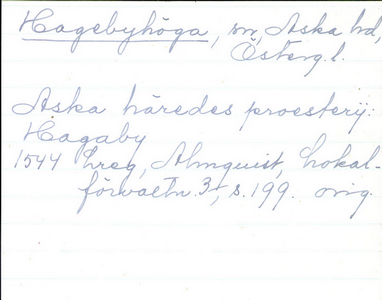 Hagebyhöga, sn, Aska hd,
Österg. l.
Aska häredes proesterij:
Hagaby
1544 hreg, Almquist, Lokal-
förvaltn. 3, s. 199. orig.